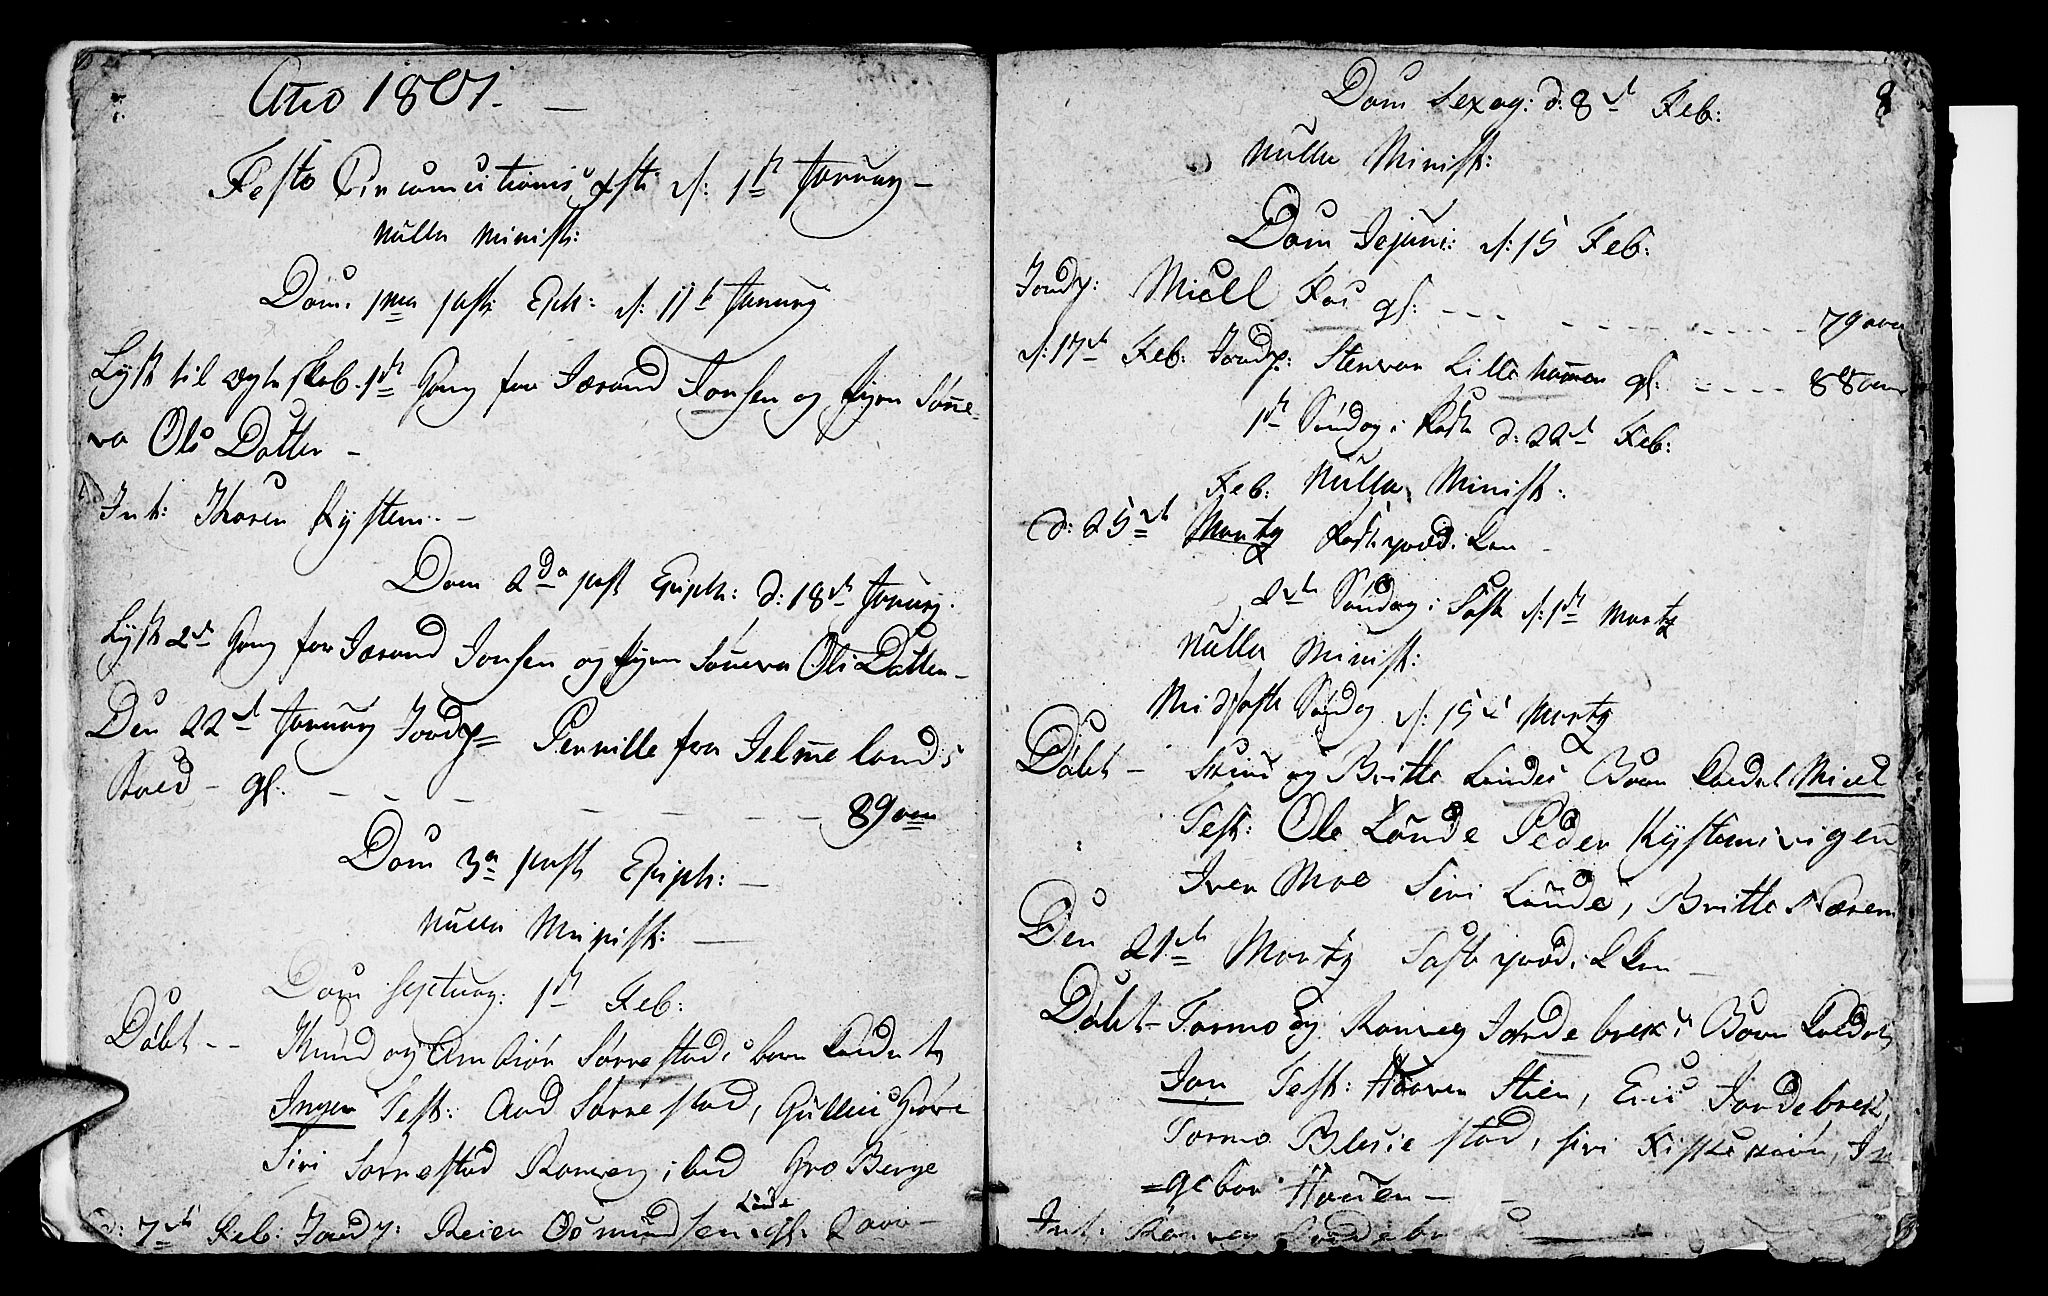 Año 1801. —
Festo Circumcitionis Xsti d: 1st Januarÿ —
Nulla Minist:
Dom. 1ma post Eph: d: 11t Januarÿ
Lyst til ægteskab 1st Gang for Joran Jonsen og Pigen Sønne-
va Ols Datter —
Int: Karen Kysten —
Dom 2da post Epiph: d: 18de Januarÿ.
Lyst 2d Gang for Joran Jonsen og Pigen Sønneva Ols Datter —
Den 22d Januarÿ Jordf= Pernille fra Jelmelands
gl. 89 aar
Dom 3a post Epiph: —
Nulla Minist: —
Dom Septuag: 1st Feb:
Døbt — Knud og Anbiør Sørrestads barn kaldet
Inger Test: Aad Sørrestad, Gullic Grove
Siri Sørrestad Ranveg ibid Gro Berge
d: 7de Feb: Jordf: Reier Osmundsen Lunde gl. 2 aar —
8
Dom Sexag: d: 8de Feb:
Nulla Minist:
Dom Jejuni: d: 15 Feb:
Jordf: Micel Foss gl: 79 aar
d: 17de Feb: Jordf: Stenvor Lillehammer gl: 88 aar
1st Søndag i Faste d: 22de Feb:
Feb: Nulla Minist:
d: 25de Martz Fasteprædiken —
2den Søndag i Faste d: 1st Martz
Nulla Minist:
Midfaste Søndag d: 15de Martz
Døbt — og Britte Lundes Barn kaldet Micel
Test: Ole Lunde Peder Kystenivigen
Iver Moe Siri Lunde, Britte Næsem
Den 21de Martz Fasteprædiken —
Døbt — Tormo og Ranveg Jordebreks Barn kaldet
Jon Test: Haaven Stien, Eric Jordebrek,
Tormo Blesiestad, Siri Fiskekiøn, In
=gebor Hauen —
Int: Ranveg Jordebrek —